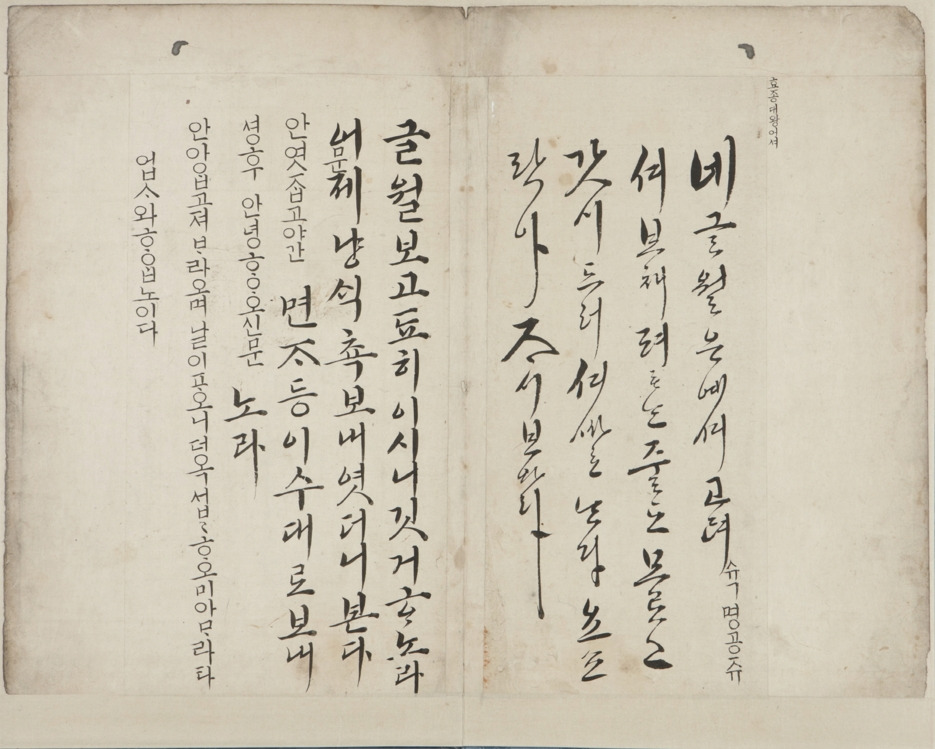 효종대왕어셔
네 글월은 예셔 고텨
슉명공쥬
셔 보채려 ᄒᆞ는 줄도 모르고
갓시 드러 셔
ᄌᆞ셔 보
글월 보고 됴히 이시니 깃거 ᄒᆞ노라
어제 냥 식쵹 보내엿더니 본다
문
안 엿ᄌᆞᆸ고 야간
면ᄌᆞ등 이 수대로 보내
셩후 안녕ᄒᆞᄋᆞ오신 문
노라
안 아ᄋᆞᆸ고져 ᄇᆞ라오며 날이 ᄑᆞ오니 더옥 섭〃ᄒᆞ오미 아ᄆᆞ라타
업ᄉᆞ와 ᄒᆞᄋᆞᆸ노이다